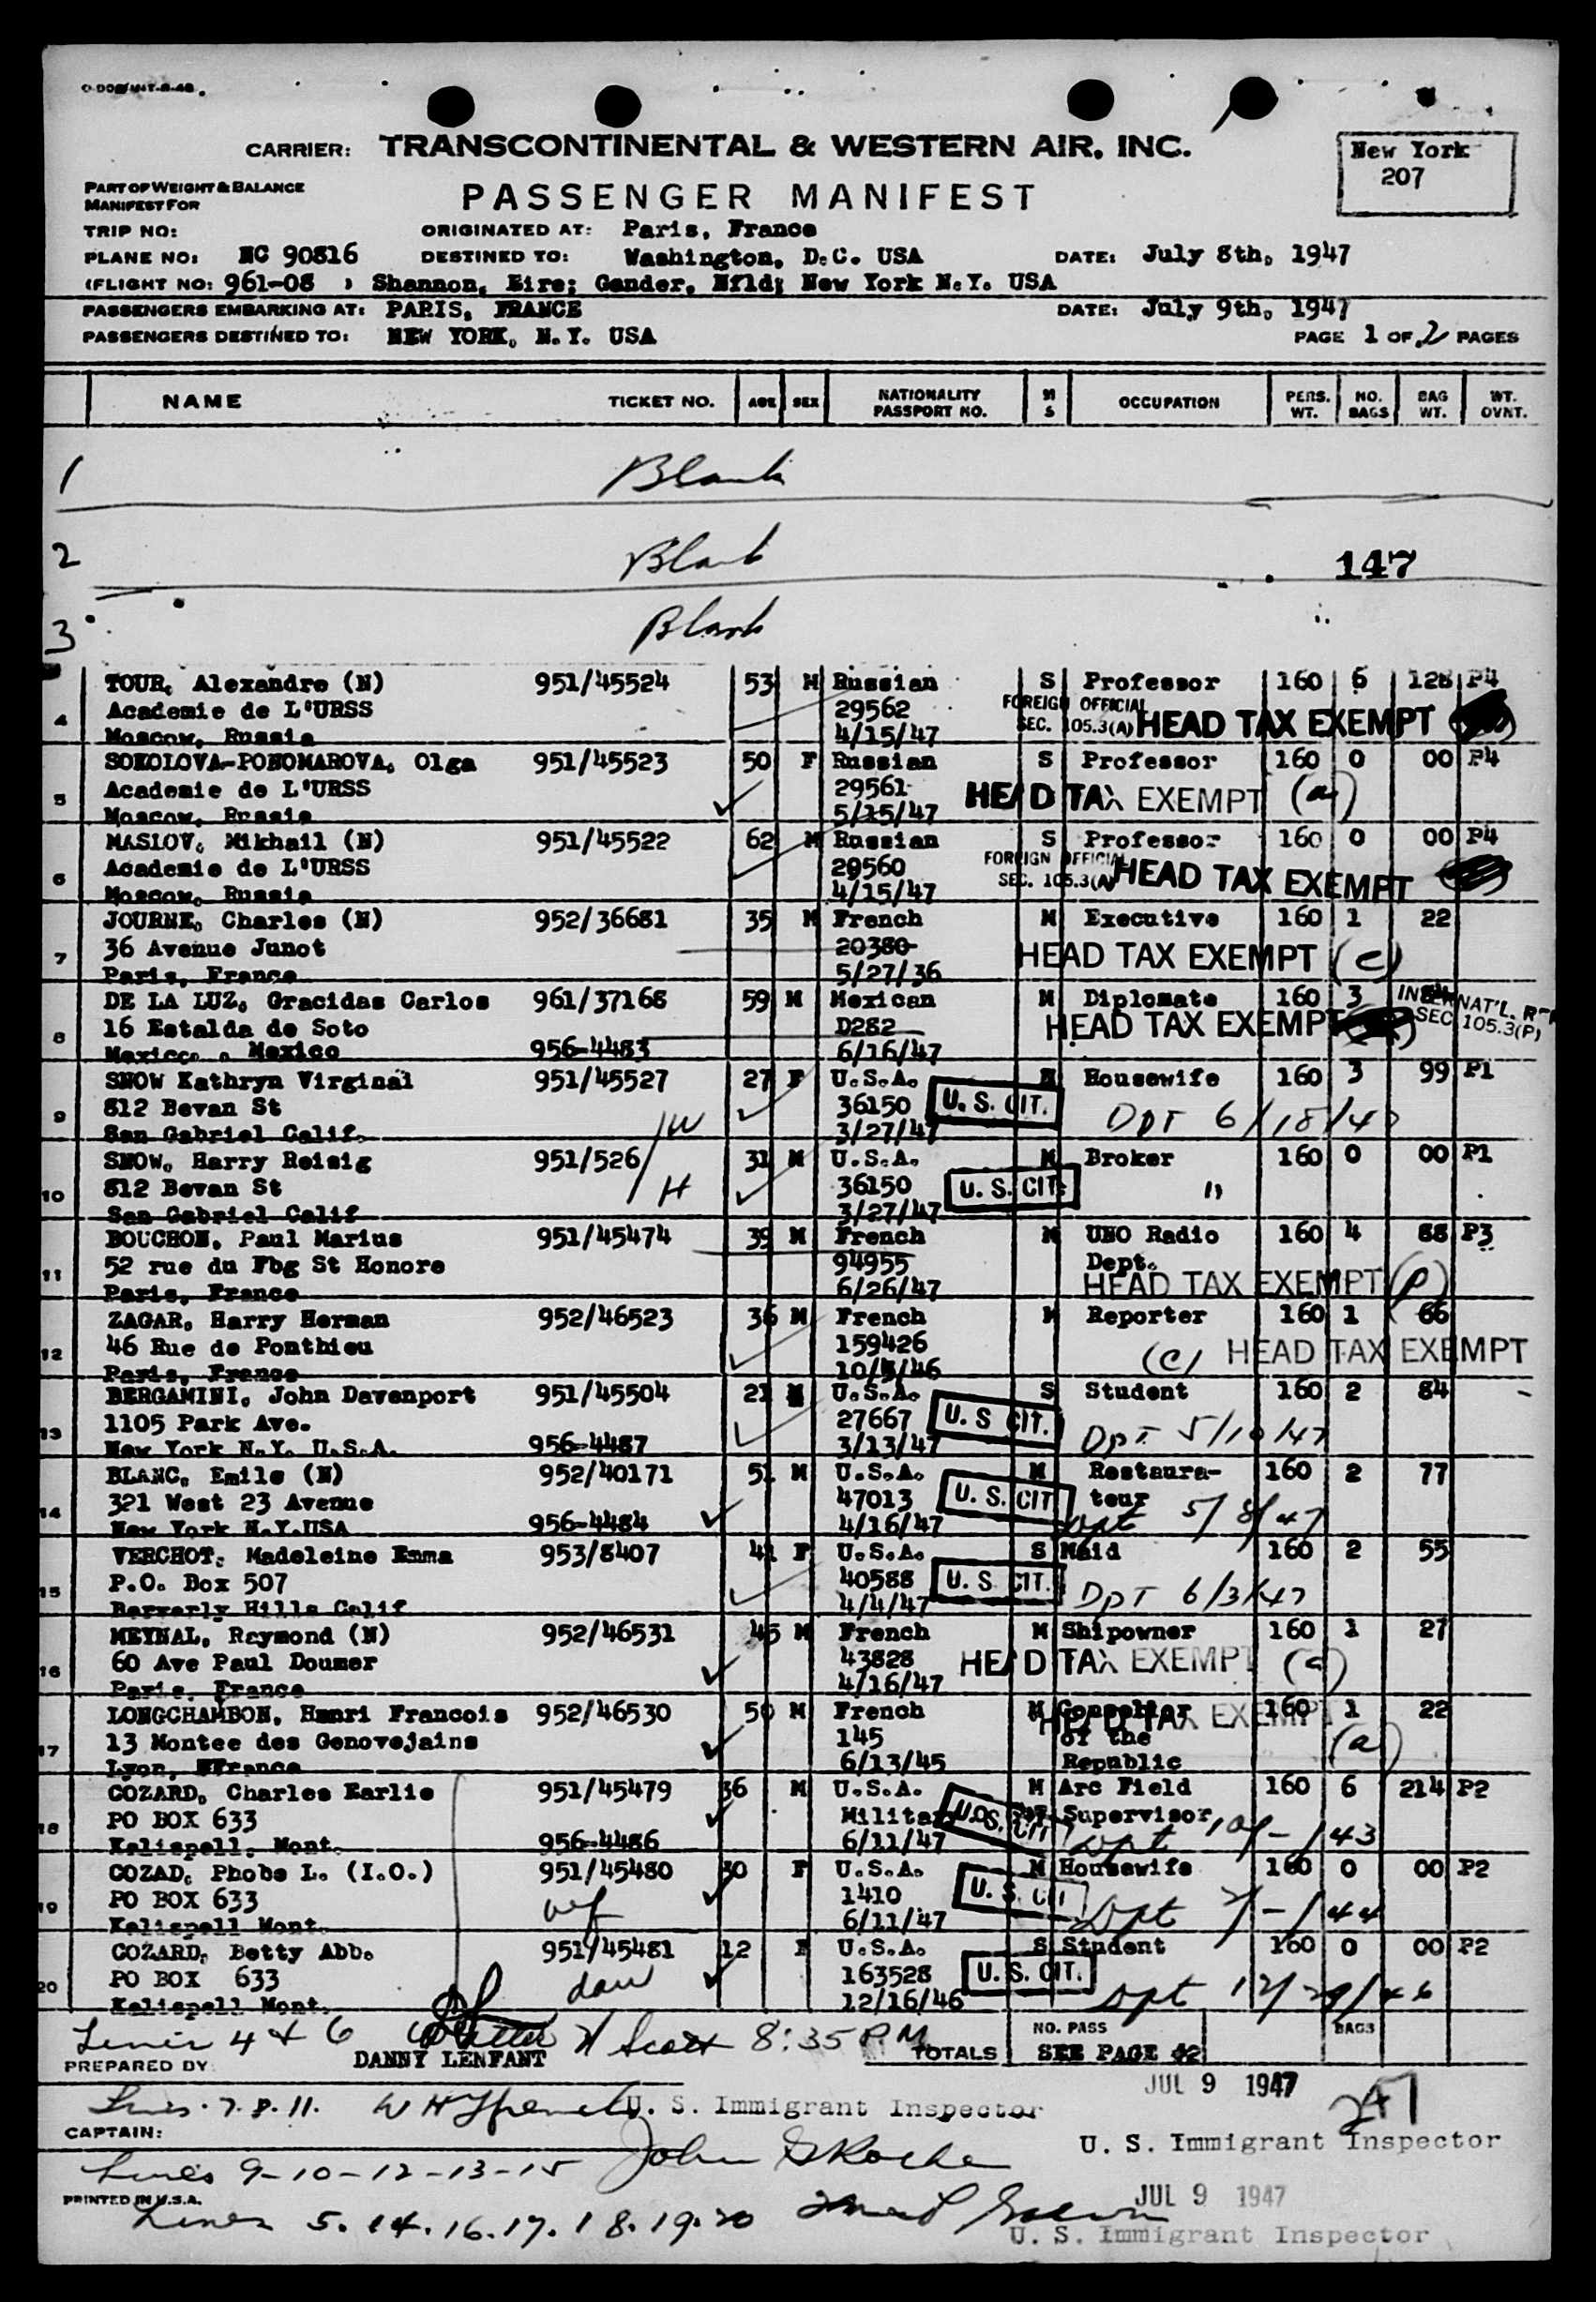 CARRIER: TRANSCONTINENTAL & WESTERN AIR, INC.
New York
207
PART OF WEIGHT & BALANCE
MANIFEST FOR
PASSENGER MANIFEST
TRIP NO: ORIGINATED AT: Paris, France
PLANE NO: NC 90816 DESTINED TO: Washington, D.C. USA DATE: July 8th, 1947
(FLIGHT NO: 961-08 ) Shannon, Eire; Gander, Nfld; New York N.Y. USA
PASSENGERS EMBARKING AT: PARIS, FRANCE DATE: July 9th, 1947
PASSENGERS DESTINED TO: NEW YORK, N.Y. USA PAGE 1 OF 2 PAGES
NAME TICKET NO. AGE SEX NATIONALITY PASSPORT NO. M S OCCUPATION PERS. WT. NO. BAGS BAG WT. WT. OVNT.
1 Blank
2 Blank 147
3 Blank
TOUR, Alexandre (N) 951/45524 53 M Russian S Professor 160 6 128 P4
4 Academie de L'URSS 29562 FOREIGN OFFICIAL SEC. 105.3(A) HEAD TAX EXEMPT
Moscow, Russia 4/15/47
SOKOLOVA-PONOMAROVA, Olga 951/45523 50 F Russian S Professor 160 0 00 P4
5 Academie de L'URSS 29561 HEAD TAX EXEMPT (a)
Moscow, Russia 5/15/47
MASLOV, Mikhail (N) 951/45522 62 M Russian S Professor 160 0 00 P4
6 Academie de L'URSS 29560 FOREIGN OFFICIAL SEC. 105.3(A) HEAD TAX EXEMPT
Moscow, Russia 4/15/47
JOURNE, Charles (N) 952/36681 35 M French M Executive 160 1 22
7 36 Avenue Junot 20380 HEAD TAX EXEMPT (c)
Paris, France 5/27/36
DE LA LUZ, Gracidas Carlos 961/37168 59 M Mexican M Diplomate 160 3
8 16 Estalda de Soto D282 HEAD TAX EXEMPT INTERNAT'L. SEC 105.3(P)
Mexico, Mexico 956-4483 6/16/47
SNOW Kathryn Virginal 951/45527 27 F U.S.A. M Housewife 160 3 99 P1
9 812 Bevan St 36150 U. S. CIT. DPT 6/18/47
San Gabriel Calif. W 3/27/47
SNOW, Harry Reisig 951/526 31 M U.S.A. M Broker 160 0 00 P1
10 812 Bevan St H 36150 U. S. CIT. "
San Gabriel Calif 3/27/47
BOUCHON, Paul Marius 951/45474 39 M French M UNO Radio 160 4 88 P3
11 52 rue du Fbg St Honore 94955 Dept. HEAD TAX EXEMPT (P)
Paris, France 6/26/47
ZAGAR, Harry Herman 952/46523 36 M French M Reporter 160 1 66
12 46 Rue de Ponthieu 159426 (c) HEAD TAX EXEMPT
Paris, France 10/5/46
BERGAMINI, John Davenport 951/45504 21 M U.S.A. S Student 160 2 84
13 1105 Park Ave. 27667 U. S CIT. DPT 5/10/47
New York N.Y. U.S.A. 956-4487 3/13/47
BLANC, Emile (N) 952/40171 51 M U.S.A. M Restaura- 160 2 77
14 321 West 23 Avenue 47013 U. S. CIT teur Dpt 5/8/47
New York N.Y.USA 956-4484 4/16/47
VERCHOT, Madeleine Emma 953/8407 41 F U.S.A. S Maid 160 2 55
15 P.O. Box 507 40588 U. S. CIT. DPT 6/3/47
Berverly Hills Calif 4/4/47
MEYNAL, Raymond (N) 952/46531 45 M French M Shipowner 160 1 27
16 60 Ave Paul Doumer 43828 HEAD TAX EXEMPT (a)
Paris, France 4/16/47
LONGCHAMBON, Henri Francois 952/46530 50 M French M 160 1 22
17 13 Montee des Genovejains 145 of the HEAD TAX EXEMPT (a)
Lyon, France 6/13/45 Republic
COZARD, Charles Earlie 951/45479 36 M U.S.A. M Arc Field 160 6 214 P2
18 PO BOX 633 Military U.S. CIT Supervisor
Kalispell, Mont. 956-4486 6/11/47 Dpt 10/-/43
COZAD, Phobe L. (I.O.) 951/45480 30 F U.S.A. M Housewife 160 0 00 P2
19 PO BOX 633 wf 1410 U. S. CIT Dpt 7/-/44
Kalispell Mont. 6/11/47
COZARD, Betty Abb. 951/45481 12 F U.S.A. S Student 160 0 00 P2
20 PO BOX 633 dau 163528 U. S. CIT. Dpt 12/29/46
Kalispell Mont. 12/16/46
Lines 4 & 6 Scott 8:35 P.M. NO. PASS BAGS
PREPARED BY DANNY LENFANT TOTALS SEE PAGE 2
JUL 9 1947
Lines 7.8.11. U. S. Immigrant Inspector
CAPTAIN: John Roche U. S. Immigrant Inspector
Lines 9-10-12-13-15
PRINTED IN U.S.A. JUL 9 1947
Lines 5.14.16.17.18.19.20
U. S. Immigrant Inspector